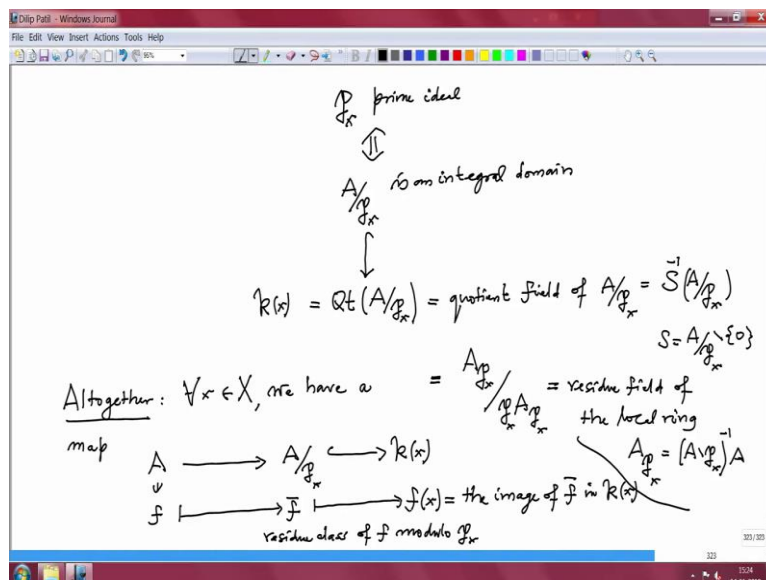 Dilip Patil - Windows Journal
File Edit View Insert Actions Tools Help
96%
𝔭_x prime ideal
⇕
A/𝔭_x is an integral domain
k(x) = Qt(A/𝔭_x) = quotient field of A/𝔭_x = S^{-1}(A/𝔭_x)
S = A/𝔭_x \ {0}
= A_{𝔭_x}/𝔭_x A_{𝔭_x} = residue field of
the local ring
A_{𝔭_x} = (A\𝔭_x)^{-1} A
Altogether: ∀ x ∈ X, we have a
map
A → A/𝔭_x ↪ k(x)
f ↦ f̄ ↦ f(x) = the image of f̄ in k(x)
residue class of f modulo 𝔭_x
323/323
323
15:24